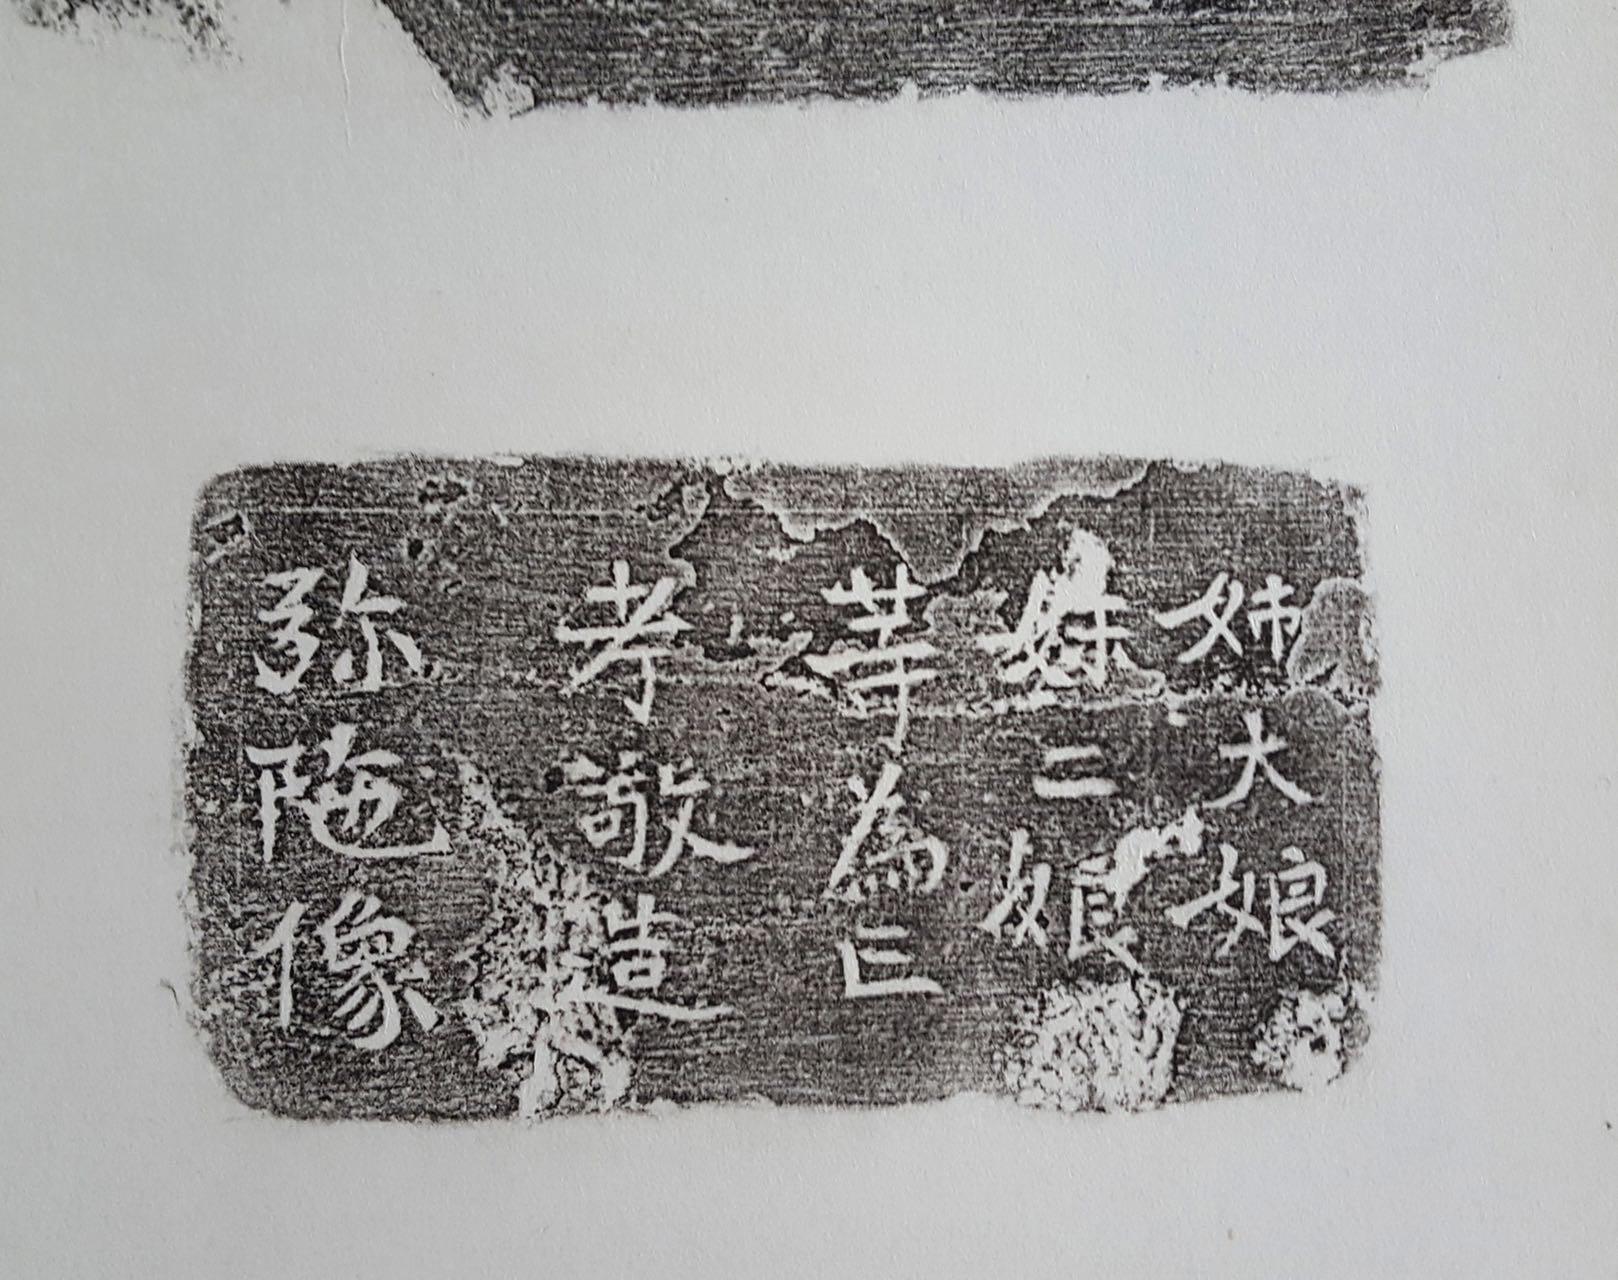 姉大娘
妹二娘
等為亡
考敬造
弥陁像